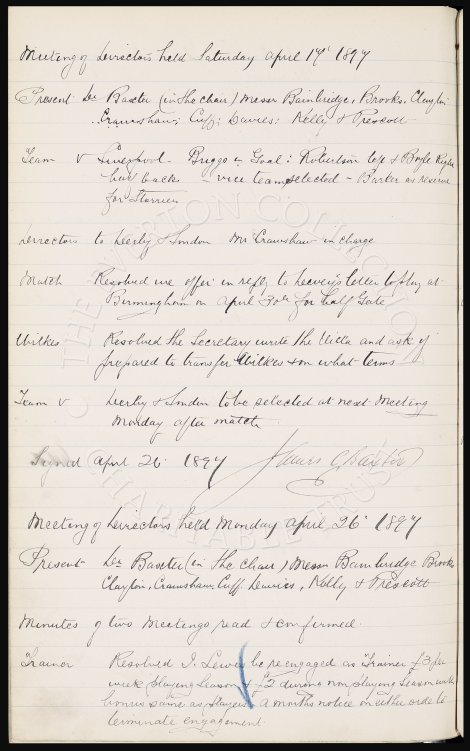 Meeting of Directors held Saturday April 17th 1897
Present Dr Baxter (in the chair) Messrs Bainbridge, Brooks, Clayton
Crawshaw, Cuff, Davies, Kelly & Prescott
Team v Liverpool. Briggs in Goal: Robertson left & Boyle Right
half backs - vice team selected - Barker as reserve
for
Directors to Derby & London Mr Crawshaw in charge
Match Resolved we offer in reply to letter to play at
Birmingham on April 30th for half Gate
Wilkes Resolved the Secretary write the Villa and ask if
prepared to transfer Wilkes & on what terms
Team v Derby & London to be selected at next Meeting
Monday after match
Signed April 26 1897 James C Baxter
Meeting of Directors held Monday April 26th 1897
Present Dr Baxter (in the chair) Messrs Bainbridge Brooks
Clayton, Crawshaw, Cuff, Davies, Kelly & Prescott
Minutes of two Meetings read & confirmed.
Trainer Resolved J. Lewis be re engaged as Trainer £3 per
week playing season & £2 during non playing season with
bonus same as players - A months notice on either side to
terminate engagement.
THE EVERTON COLLECTION
CHARITABLE TRUST